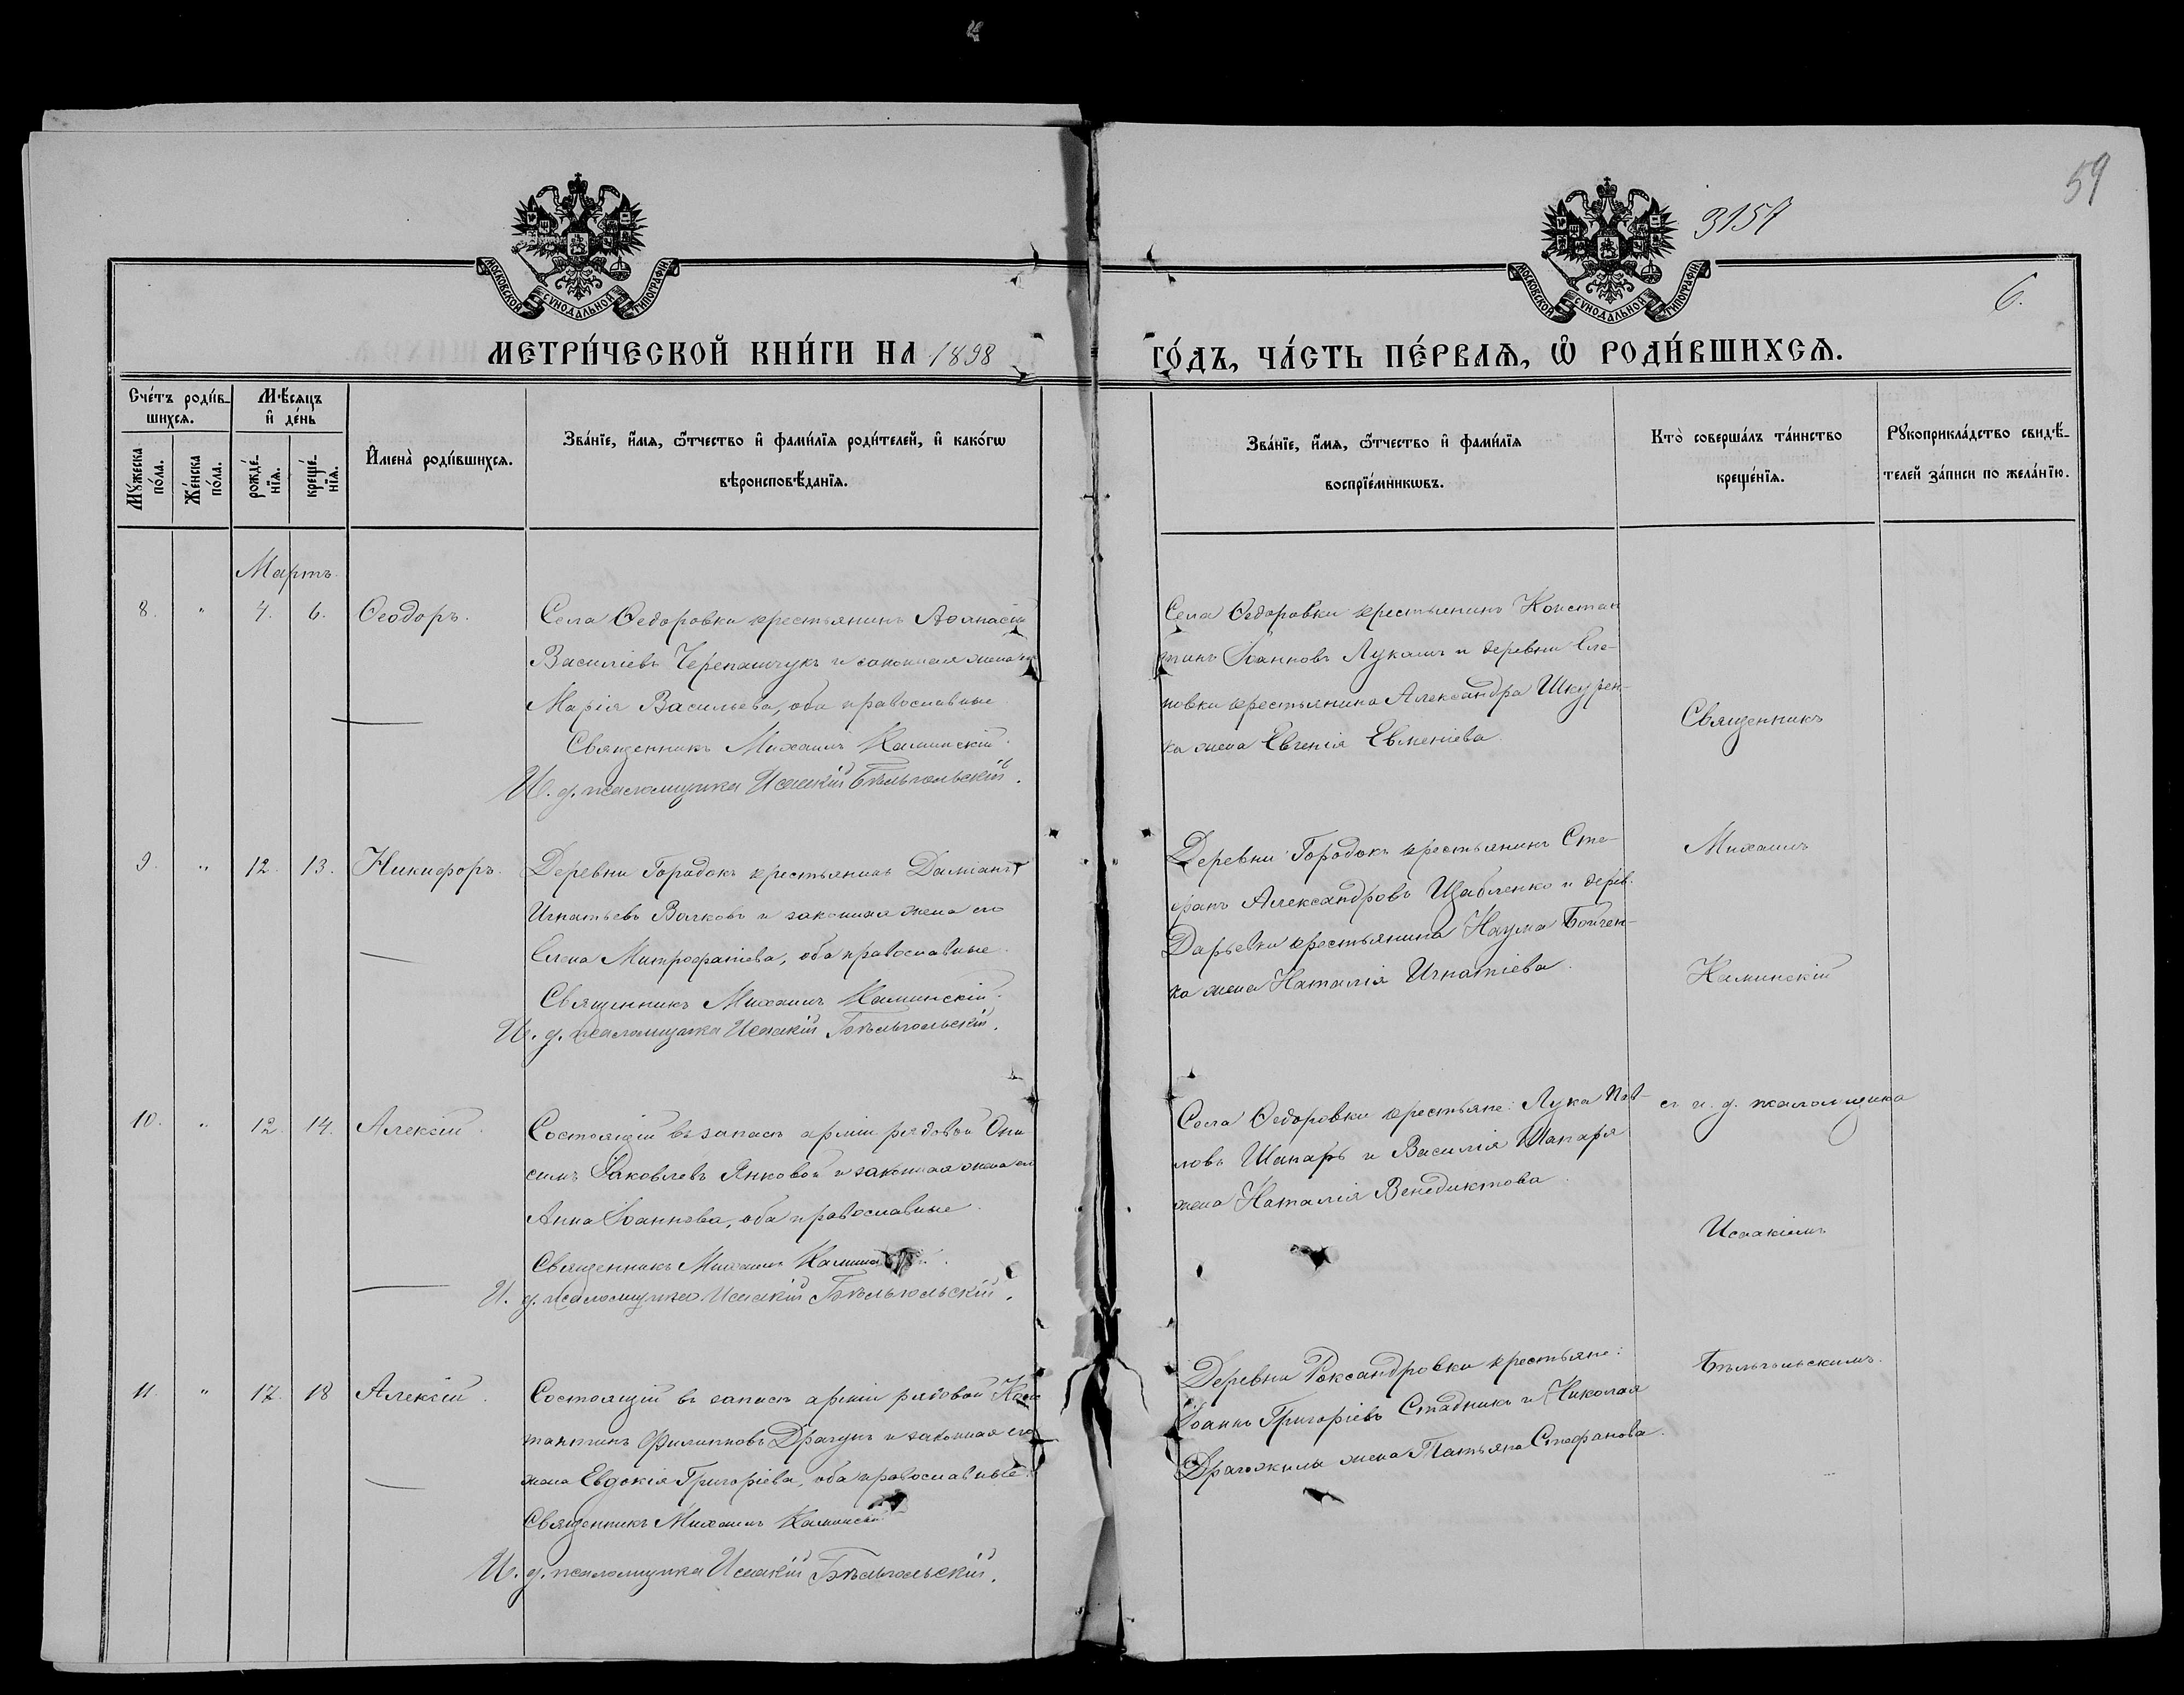 59
3157
6.
МОСКОВСКОЙ СѴНОДАЛЬНОЙ ТИПОГРАФІИ
МОСКОВСКОЙ СѴНОДАЛЬНОЙ ТИПОГРАФІИ
МЕТРИ́ЧЕСКОЙ КНИ́ГИ НА 1898 ГО́ДЪ, ЧА́СТЬ ПЕ́РВАѦ, Ѡ҆ РОДИ́ВШИХСѦ.
Сче́тъ роди́в-
шихсѧ.
Мꙋ́жеска
по́ла.
Же́нска
по́ла.
Мѣ́сѧцъ
и҆ де́нь
рожде́-
нїѧ.
креще́-
нїѧ.
И҆мена̀ роди́вшихсѧ.
Зва́нїе, и҆́мѧ, ѻ҆́тчество и҆ фами́лїѧ роди́телей, и҆ како́гѡ
вѣроисповѣ́данїѧ.
Зва́нїе, и҆́мѧ, ѻ҆́тчество и҆ фами́лїѧ
воспрїе́мникѡвъ.
Кто̀ соверша́лъ та́инство
креще́нїѧ.
Рꙋкоприкла́дство свидѣ́-
телей за́писи по жела́нїю.
Мартъ.
8. " 4. 6. Ѳеодоръ.
Села Ѳедоровки крестьянинъ Аѳанасій
Василіевъ Черепащукъ и законная жена его
Марія Васильева, оба православные.
Священникъ Михаилъ Каминскій.
И. д. псаломщика Исаакій Бѣльчольскій.
Села Ѳедоровки крестьянинъ Констан
тинъ Іоанновъ Лукашъ и деревни Еле-
новки крестьянина Александра Шкурен-
ка жена Евгенія Евменіева.
Священникъ
9. " 12. 13. Никифоръ.
Деревни Городокъ крестьянинъ Даміанъ
Игнатьевъ Волковъ и законная жена его
Елена Митрофаніева, оба православные.
Священникъ Михаилъ Каминскій.
И. д. псаломщика Исаакій Бѣльчольскій.
Деревни Городокъ крестьянинъ Сте-
фанъ Александровъ Щабленко и дерев.
Дарьевки крестьянина Наума Бойчен-
ка жена Наталія Игнатіева.
Михаилъ
Каминскій
10. " 12. 14. Алексій.
Состоящій въ запасѣ арміи рядовой Они
симъ Іаковлевъ Янковой и законная жена его
Анна Іоаннова, оба православные.
Священникъ Михаилъ
И. д. псаломщика Исаакій Бѣльчольскій.
Села Ѳедоровки крестьяне: Лука Пав-
ловъ Шапарь и Василія Шапаря
жена Наталія Венедиктова.
съ и. д. псаломщика
Исаакіемъ
11. " 17. 18 Алексій.
Состоящій въ запасѣ арміи рядовой Конс
тантинъ Филипповъ Драгунъ и законная его
жена Евдокія Григоріева, оба православные.
Священникъ Михаилъ Каминскій
И. д. псаломщика Исаакій Бѣльчольскій.
Деревни Роксандровки крестьяне:
Іоаннъ Григоріевъ Стадникъ и Николая
жена Татьяна Стефанова.
Бѣльчольскимъ.